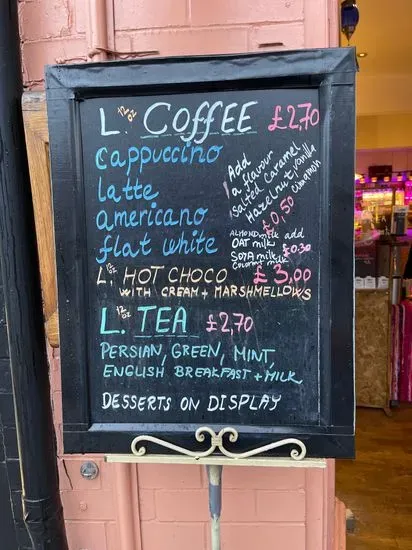 L. 12 oz COFFEE £2,70
cappuccino
latte
americano
flat white
Add
a flavour
salted caramel
Hazelnut, vanilla
cinnamon
£0,50
ALMOND milk add
OAT milk
SOYA milk £0.30
Coconut milk
L. 12 oz HOT CHOCO £3,00
WITH CREAM + MARSHMELLOWS
L. 12 oz TEA £2,70
PERSIAN, GREEN, MINT,
ENGLISH BREAKFAST + MILK
DESSERTS ON DISPLAY